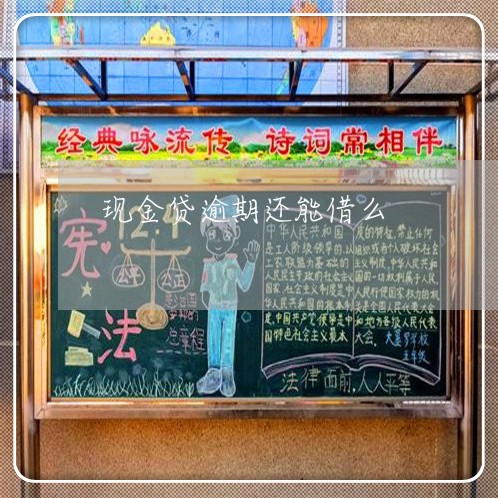 经典咏流传 诗词常相伴
现金贷逾期还能借么
宪法
12.4
公平 公正
总章程
中华人民共和国
是工人阶级领导的,以
工农联盟为基础的
人民民主专政的社会主义
国家,社会主义制度是中
华人民共和国的根本制
度,中国共产党领导是中
国特色社会主义最本
质的特征,禁止任何
组织或者个人破坏社会
主义制度,中华人民共和
国的一切权利属于人民,
人民行使国家权力的机
关是全国人民代表大会
和地方各级人民代表
大会。
五年级
法律面前,人人平等